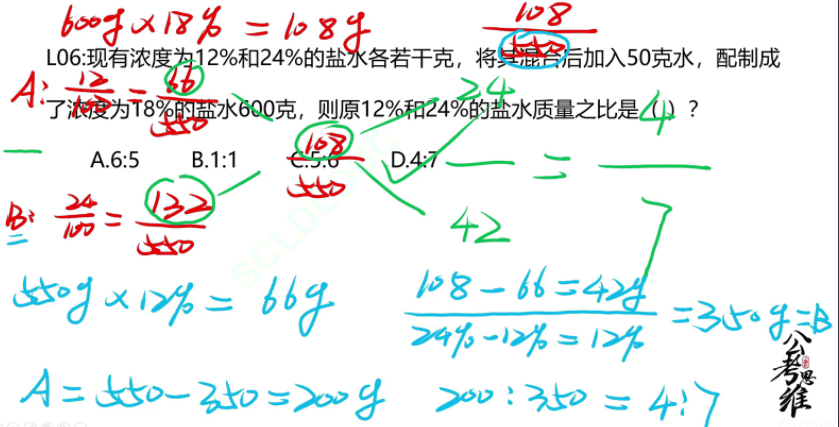 600g×18%=108g
108/550
L06:现有浓度为12%和24%的盐水各若干克，将其混合后加入50克水，配制成
了浓度为18%的盐水600克，则原12%和24%的盐水质量之比是（ ）？
A: 12/100=66/550
108/550
24
42
= 4/7
A.6:5 B.1:1 C.5:6 D.4:7
B: 24/100=132/550
550g×12%=66g
108-66=42g
24%-12%=12%
=350g=B
A=550-350=200g
200:350=4:7
公考思维